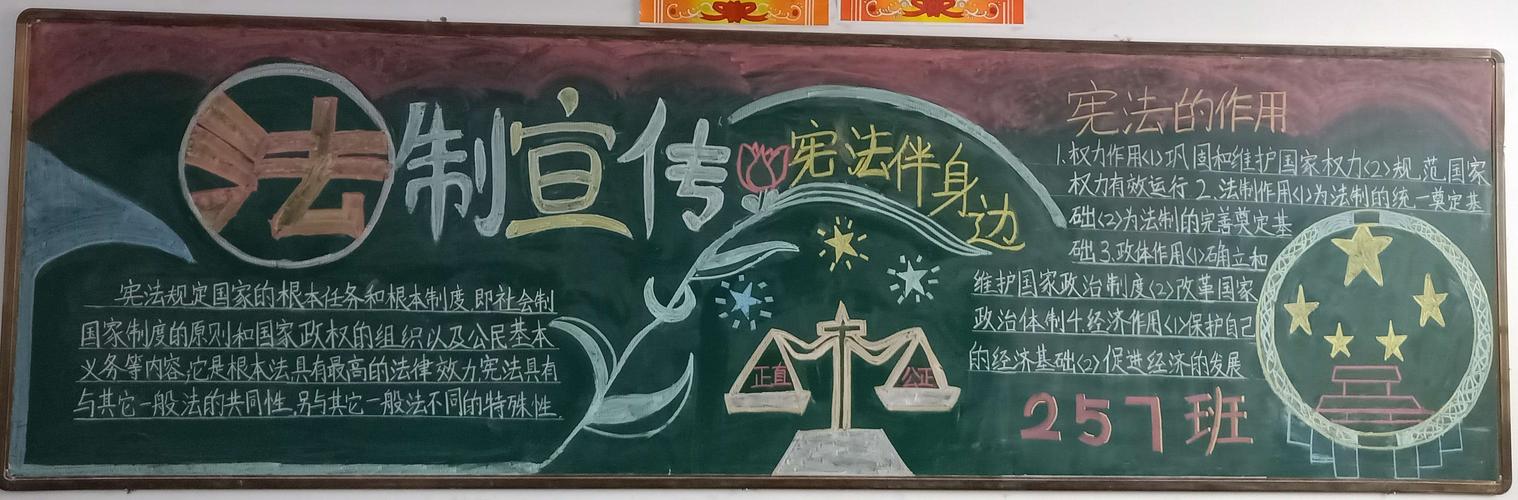 法制宣传
宪法伴身边
宪法规定国家的根本任务和根本制度,即社会制
国家制度的原则和国家政权的组织以及公民基本
义务等内容,它是根本法,具有最高的法律效力宪法具有
与其它一般法的共同性,另与其它一般法不同的特殊性.
正直
公正
宪法的作用
1.权力作用<1>巩固和维护国家权力<2>规.范国家
权力有效运行 2.法制作用<1>为法制的统一奠定基
础<2>为法制的完善奠定基
础 3.政体作用<1>确立和
维护国家政治制度<2>改革国家
政治体制 4.经济作用<1>保护自己
的经济基础<2>促进经济的发展
257班